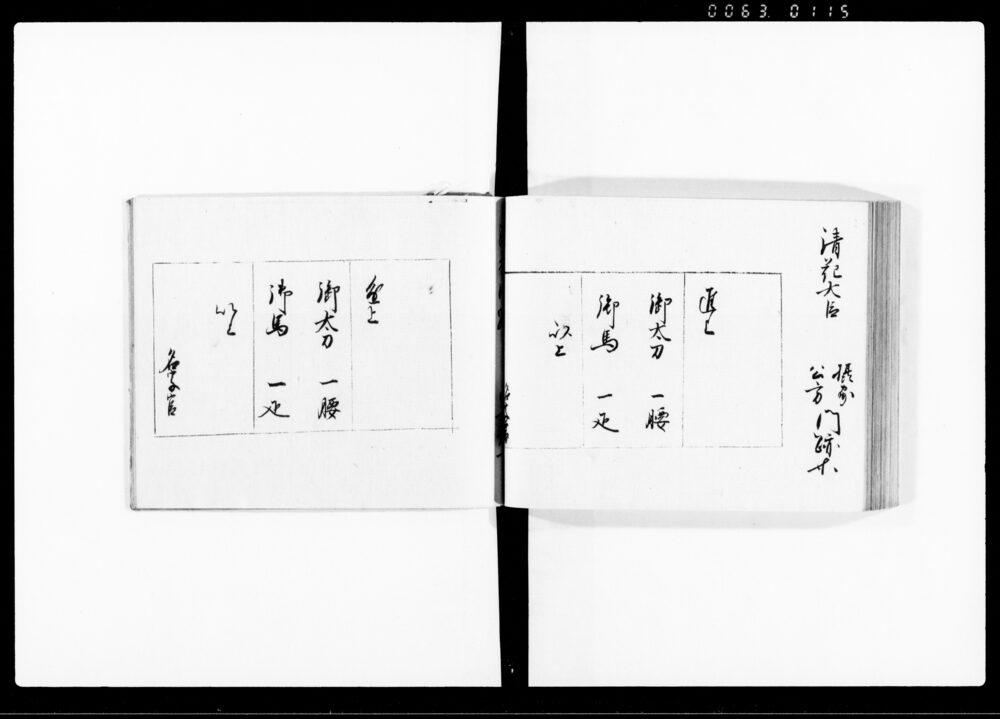 0063. 0115
清花大臣
摂家
公方
門跡
進上
御太刀 一腰
御馬 一疋
以上
進上
御太刀 一腰
御馬 一疋
以上
名字官